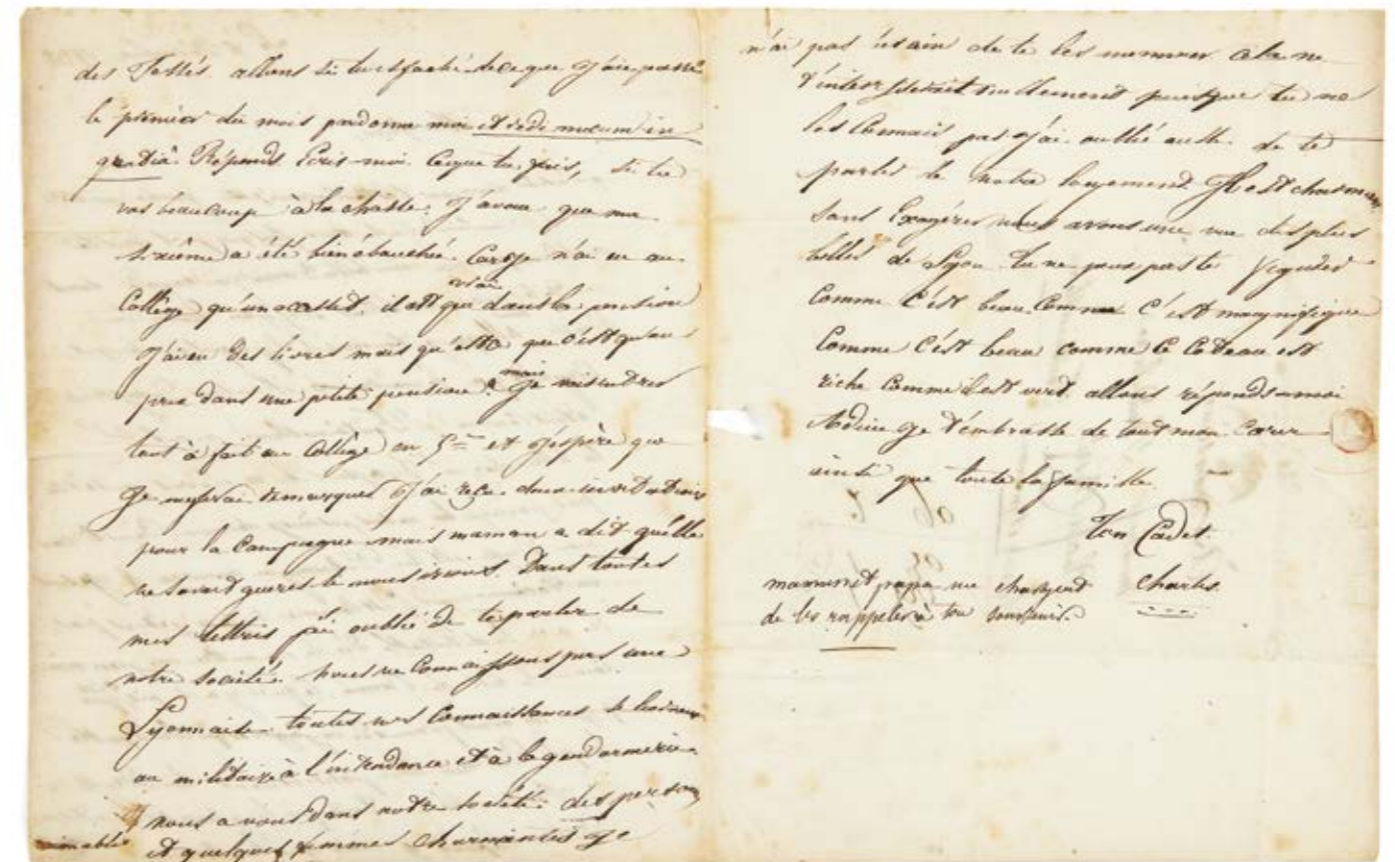 des fossés. allons si tu es faché de ce que j'aie passé
le premier du mois pardonne moi et redi mecum in
gratiâ. Réponds Ecris-moi ce que tu fais, si tu
vas beaucoup à la chasse. J'avoue que ma
sixième a été bien ébauchée. Car je n'ai eu au
Collège qu'un accessit. il est vrai que dans la pension
J'ai eu des livres mais qu'est-ce que c'est qu'un
prix dans une petite pension? mais Je vais entrer
tout à fait au Collège en 5ème et j'espère que
Je me ferai remarquer J'ai reçu deux invitations
pour la Campagne mais maman a dit qu'elle
ne savait guères si nous irions. Dans toutes
mes lettres j'ai oublié de te parler de
notre société. nous ne Connaissons pas une
Lyonnaise toutes nos Connaissances se bornent
au militaire à l'intendance et à la gendarmerie
nous avons dans notre société des person
aimables et quelques femmes charmantes je
n'ai pas besoin de te les nommer cela ne
t'interesserait nullement puisque tu ne
les Connais pas j'ai oublié aussi de te
parler de notre logement Il est charmant,
sans Exagérer nous avons une vue des plus
belles de Lyon. Tu ne peux pas te figurer
Comme c'est beau Comme c'est magnifique
Comme c'est beau comme le Coteau est
riche Comme il est vert. allons réponds-moi
Adieu je t'embrasse de tout mon Cœur
ainsi que toute la famille.
Ton Cadet
Charles
maman et papa me chargent
de les rappeler à ton souvenir.